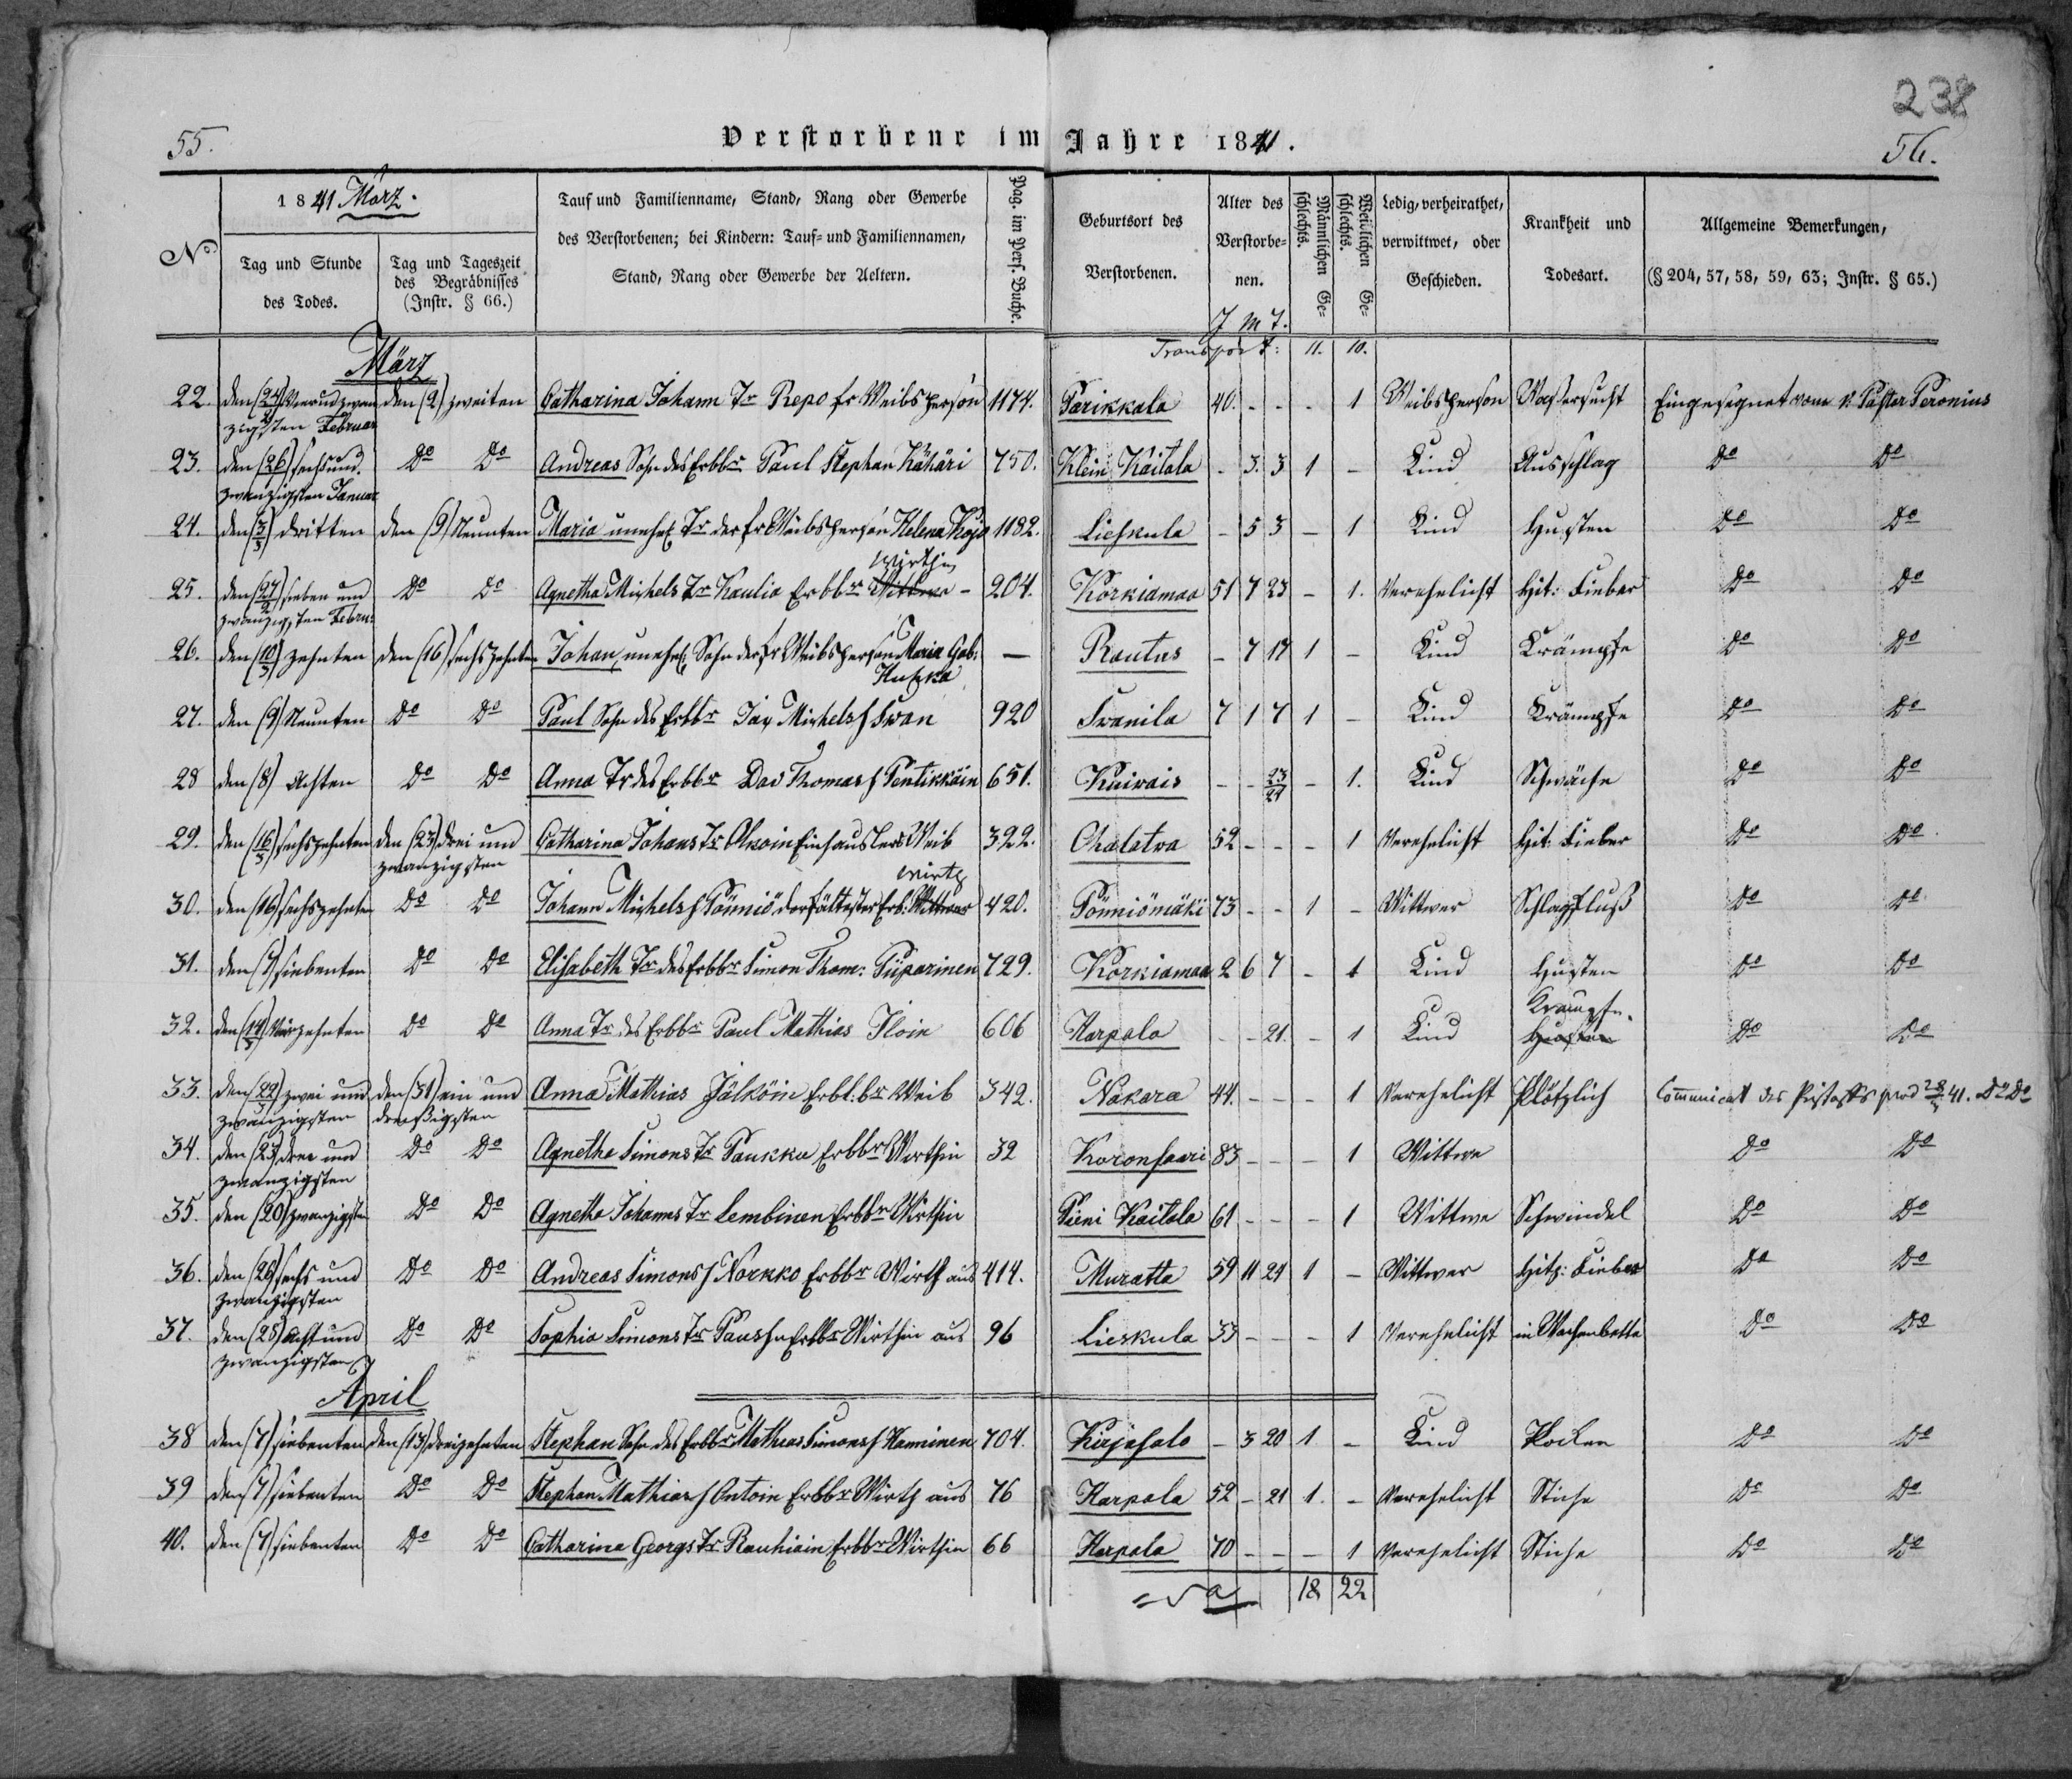 238
55.
Verstorbene im Jahre 1841.
56.
No
1841 März.
Tag und Stunde des Todes.
Tag und Tageszeit des Begräbnisses (Instr. § 66.)
Tauf und Familienname, Stand, Rang oder Gewerbe des Verstorbenen; bei Kindern: Tauf- und Familiennamen, Stand, Rang oder Gewerbe der Aeltern.
Pag. im Pers. Buche.
Geburtsort des Verstorbenen.
Alter des Verstorbenen.
J M T.
Männlichen Geschlechts.
Weiblichen Geschlechts.
Ledig, verheirathet, verwittwet, oder Geschieden.
Krankheit und Todesart.
Allgemeine Bemerkungen, (§ 204, 57, 58, 59, 63; Instr. § 65.)
März
Transport: 11. 10.
22. den (24/2) Vierundzwanzigsten Februar den (2) zweiten Catharina Johann Tr Repo fr Weibsperson 1174. Parikkala 40. - - - 1 Weibsperson Waßersucht Eingesegnet vom Pastor Peronius
23. den (26) sechsund zwanzigsten Januar Do Do Andreas Sohn des Erbbr Paul Stephan Kähäri 750. Klein Kaitala - 3. 3 1 - Kind Ausschlag Do Do
24. den (3/3) dritten den (9) Neunten Maria unehel Tr der fr Weibsperson Helena Kojo 1182. Lieskula - 5 3 - 1 Kind Husten Do Do
25. den (27/2) sieben und zwanzigsten Febru: Do Do Agnetha Michels Tr Kaulia Erbbr Wittwe Wirthin - 204. Korkiamaa 51 7 23 - 1. Verehelicht Hit: Fieber Do Do
26. den (10/3) zehnten den (16) sechszehnten Johan, unehel Sohn der fr Weibsperson Maria Gab: Huska — Rautus - 7 17 1 - Kind Krämpfe Do Do
27. den (9) Neunten Do Do Paul Sohn des Erbbr Jac Michels f Iwan 920 Iwanila 7 1 7 1 - Kind Krämpfe Do Do
28 den (8) Achten Do Do Anna Tr des Erbbr Dav Thomas f Pentikkäin 651. Kuiwais - - 23/24 - 1. Kind Schwäche Do Do
29. den (16/3) sechszehnten den (23) drei und zwanzigsten Catharina Johans Tr Okoin Einhauslers Weib 392. Ohalatwa 52 - - - 1 Verehelicht Hit: Fieber Do Do
30. den (16) sechszehnten Do Do Johann Michels f Pönniö dorfältester Erb: Wittwer Wirth 420. Pönniömäki 73 - - 1 - Wittwer Schlagfluß Do Do
31. den (7) siebenten Do Do Elisabeth Tr des Erbbr Simon Thom: Puparinen 729. Korkiamaa 2 6 7 - 1 Kind Husten Do Do
32. den (14/3) Vierzehnten Do Do Anna Tr des Erbbr Paul Mathias Iloin 606 Karpala - - 21. - 1 Kind Krämpfe. Husten Do Do
33. den (22/3) zwei und zwanzigsten den (31) ein und dreißigsten Anna Mathias Jälköin Erbl.br Weib 342. Nakara 44. - - - 1 Verehelicht Plötzlich Communicat des 28/3 41. Do Do
34. den (23) drei und zwanzigsten Do Do Agnetha Simons Tr Paukku Erbbr Wirthin 32 Koronsaari 83 - - - 1 Wittwe Do Do
35. den (20) zwanzigsten Do Do Agnetha Johanns Tr Lembinen Erbbr Wirthin Pieni Kaitala 61 - - - 1 Wittwe Schwindel Do Do
36. den (26) sechs und zwanzigsten Do Do Andreas Simons f Norkko Erbbr Wirth aus 414. Muratta 59 11 24 1 - Wittwer Hitz: Fieber Do Do
37. den (28) Acht und zwanzigsten Do Do Sophia Simons Tr Pausu Erbbr Wirthin aus 96 Lieskula 33 - - - 1 Verehelicht in Wochenbette Do Do
April
38 den (7) siebenten den (13) dreizehnten Stephan Sohn des Erbbr Mathias Simons f Hanninen 704. Kirjasalo - 3 20 1 - Kind Pocken Do Do
39 den (7) siebenten Do Do Stephan Mathias f Antoin Erbbr Wirth aus 76 Karpala 52 - 21 1. - Verehelicht Stiche Do Do
40. den (7) siebenten Do Do Catharina Georgs Tr Rauhiain Erbbr Wirthin 66 Karpala 70 - - - 1 Verehelicht Stiche Do Do
18 22